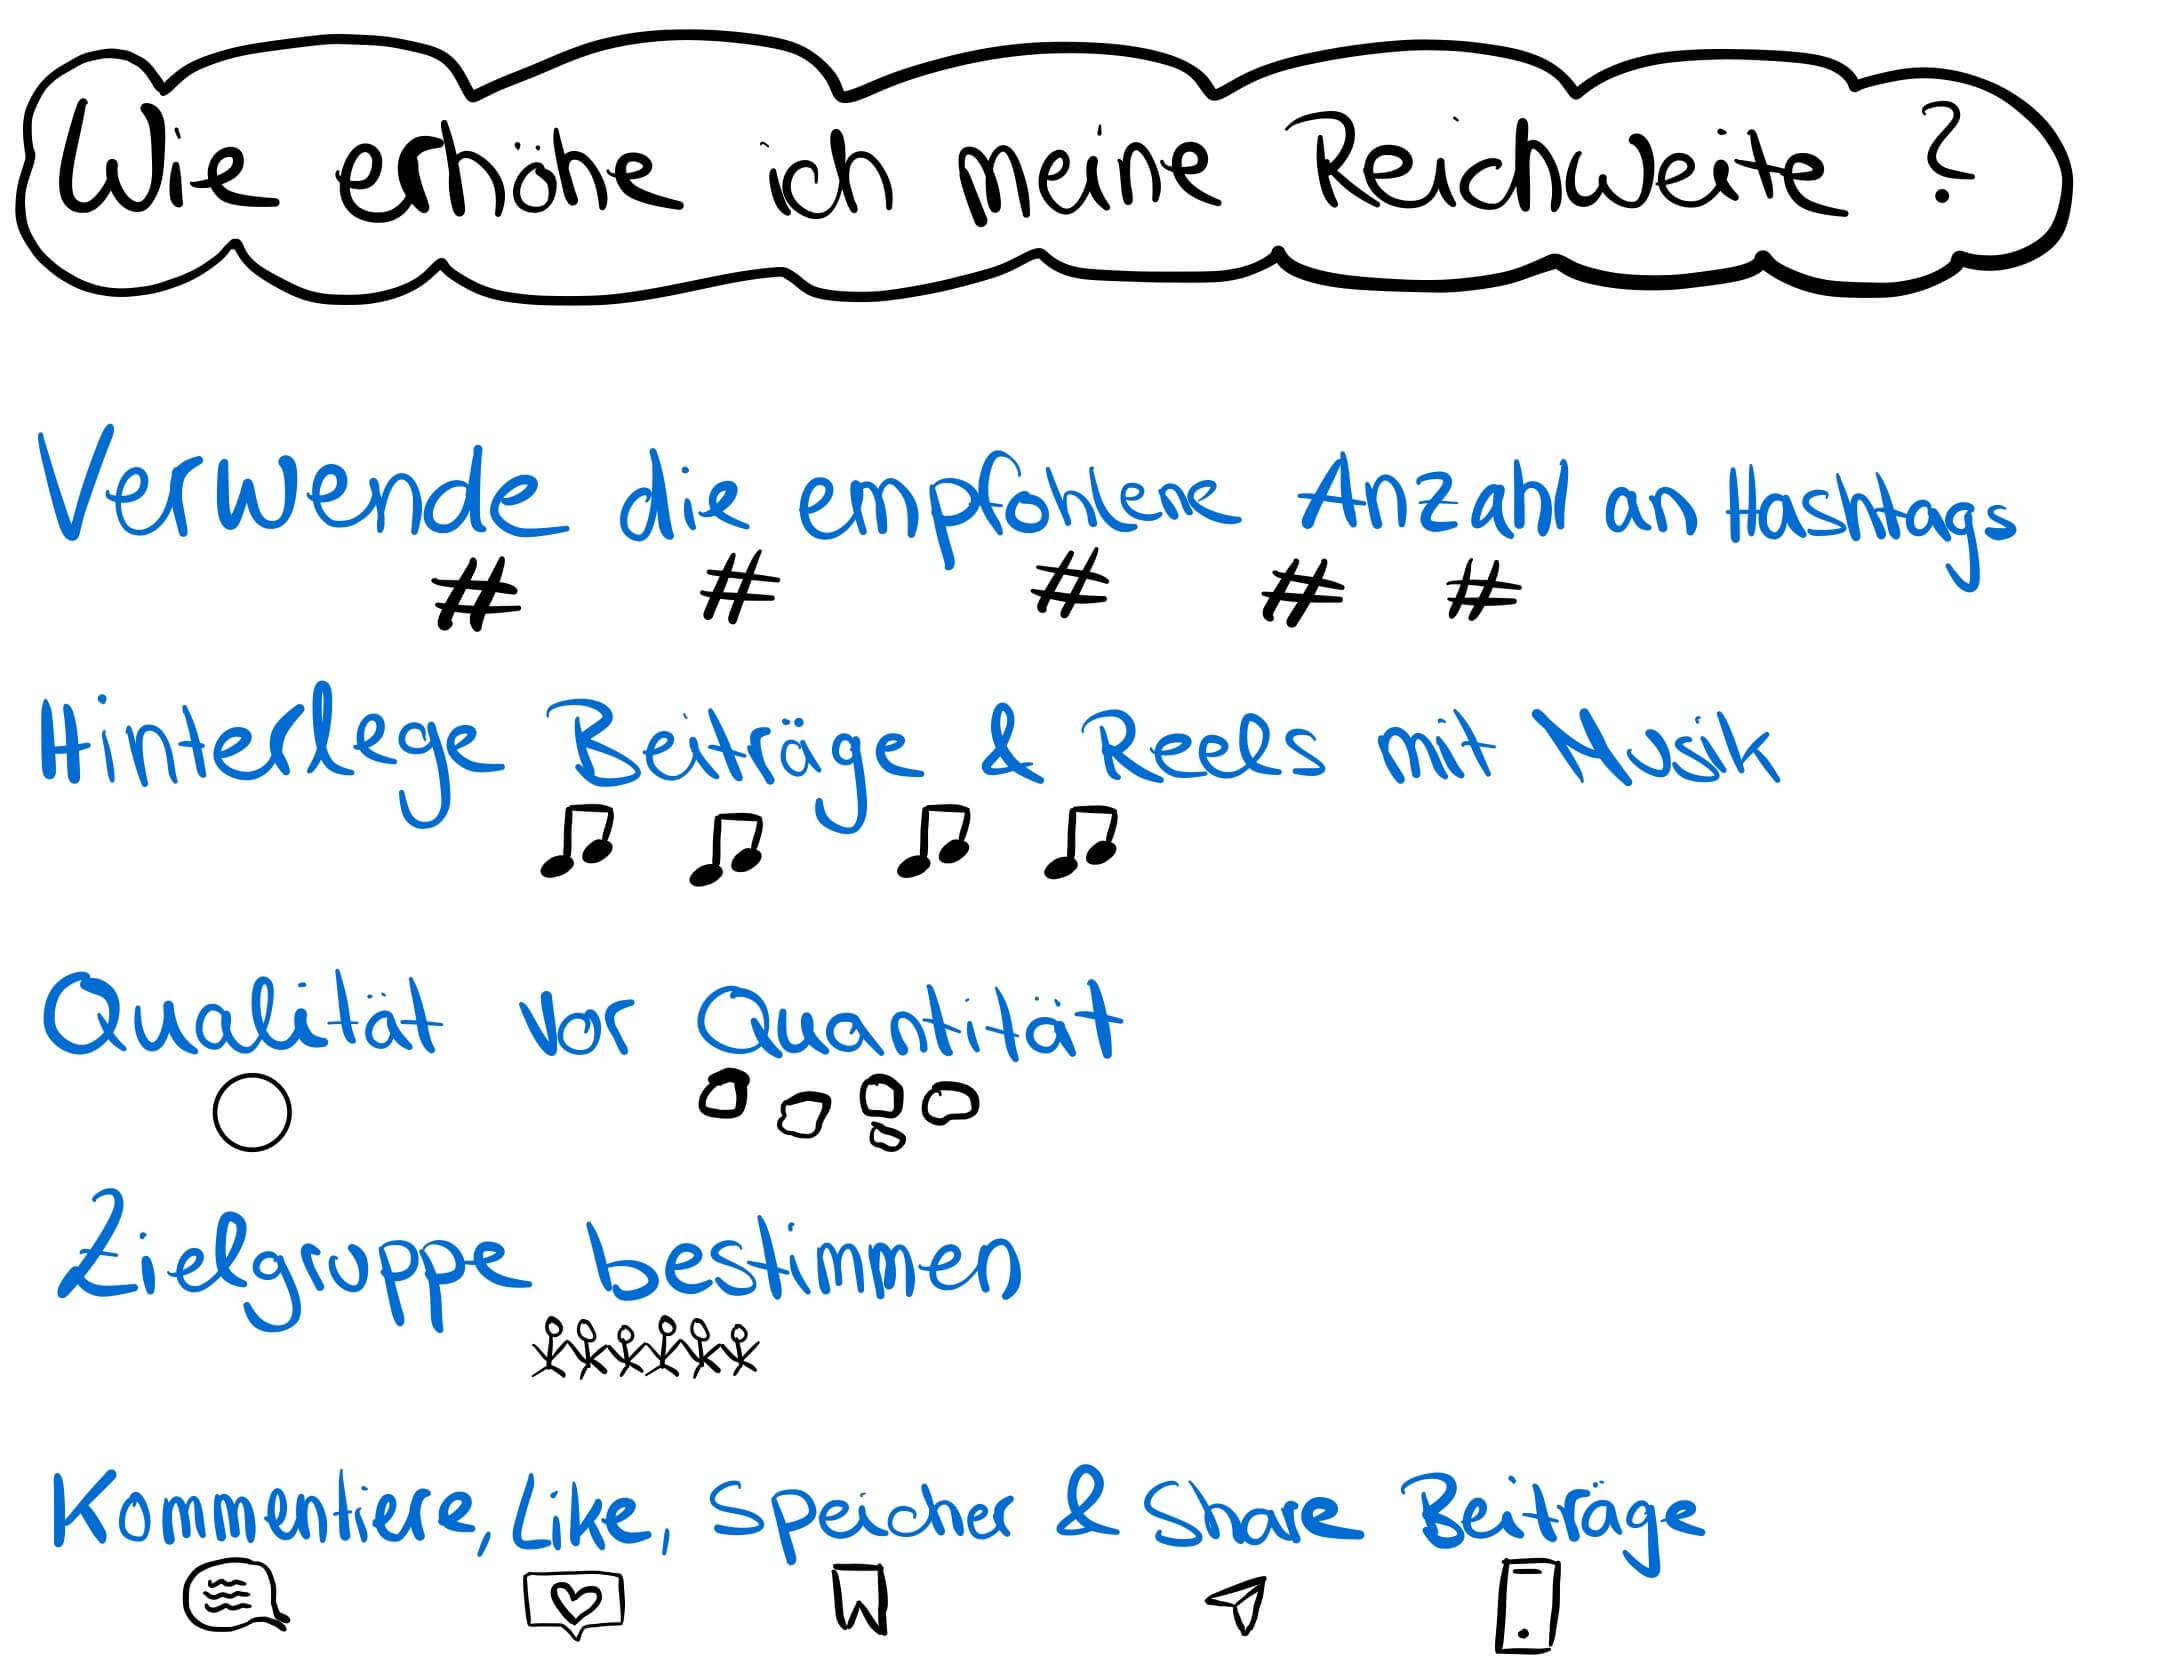 Wie erhöhe ich meine Reichweite ?
Verwende die empfohlene Anzahl an Hashtags
# # # # #
Hinterlege Beiträge & Reels mit Musik
Qualität vor Quantität
Zielgruppe bestimmen
Kommentiere, Like, Speicher & Share Beiträge